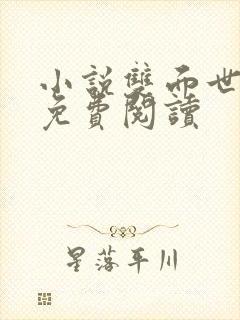 小說雙面世
免費閱讀
星落平川